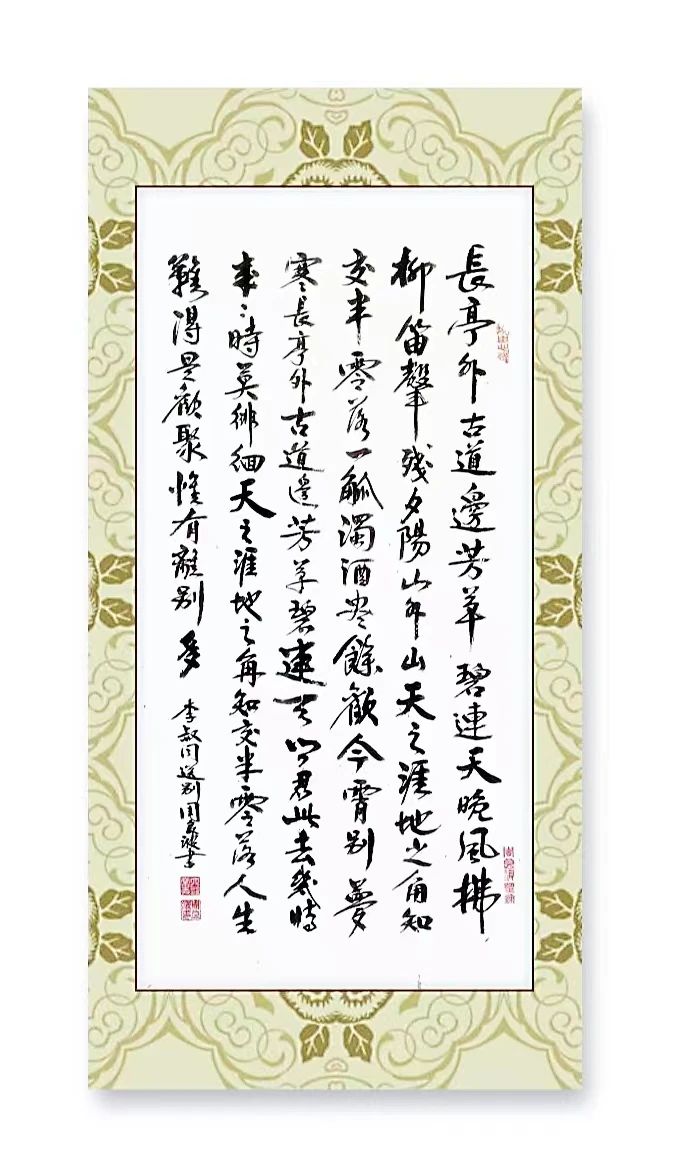 長亭外古道邊芳草碧連天晚風拂
柳笛聲残夕陽山外山天之涯地之角知
交半零落一觚濁酒盡餘歡今宵别夢
寒長亭外古道邊芳草碧連天问君此去幾時
來來時莫徘徊天之涯地之角知交半零落人生
難得是歡聚惟有離别多
李叔同送别周書